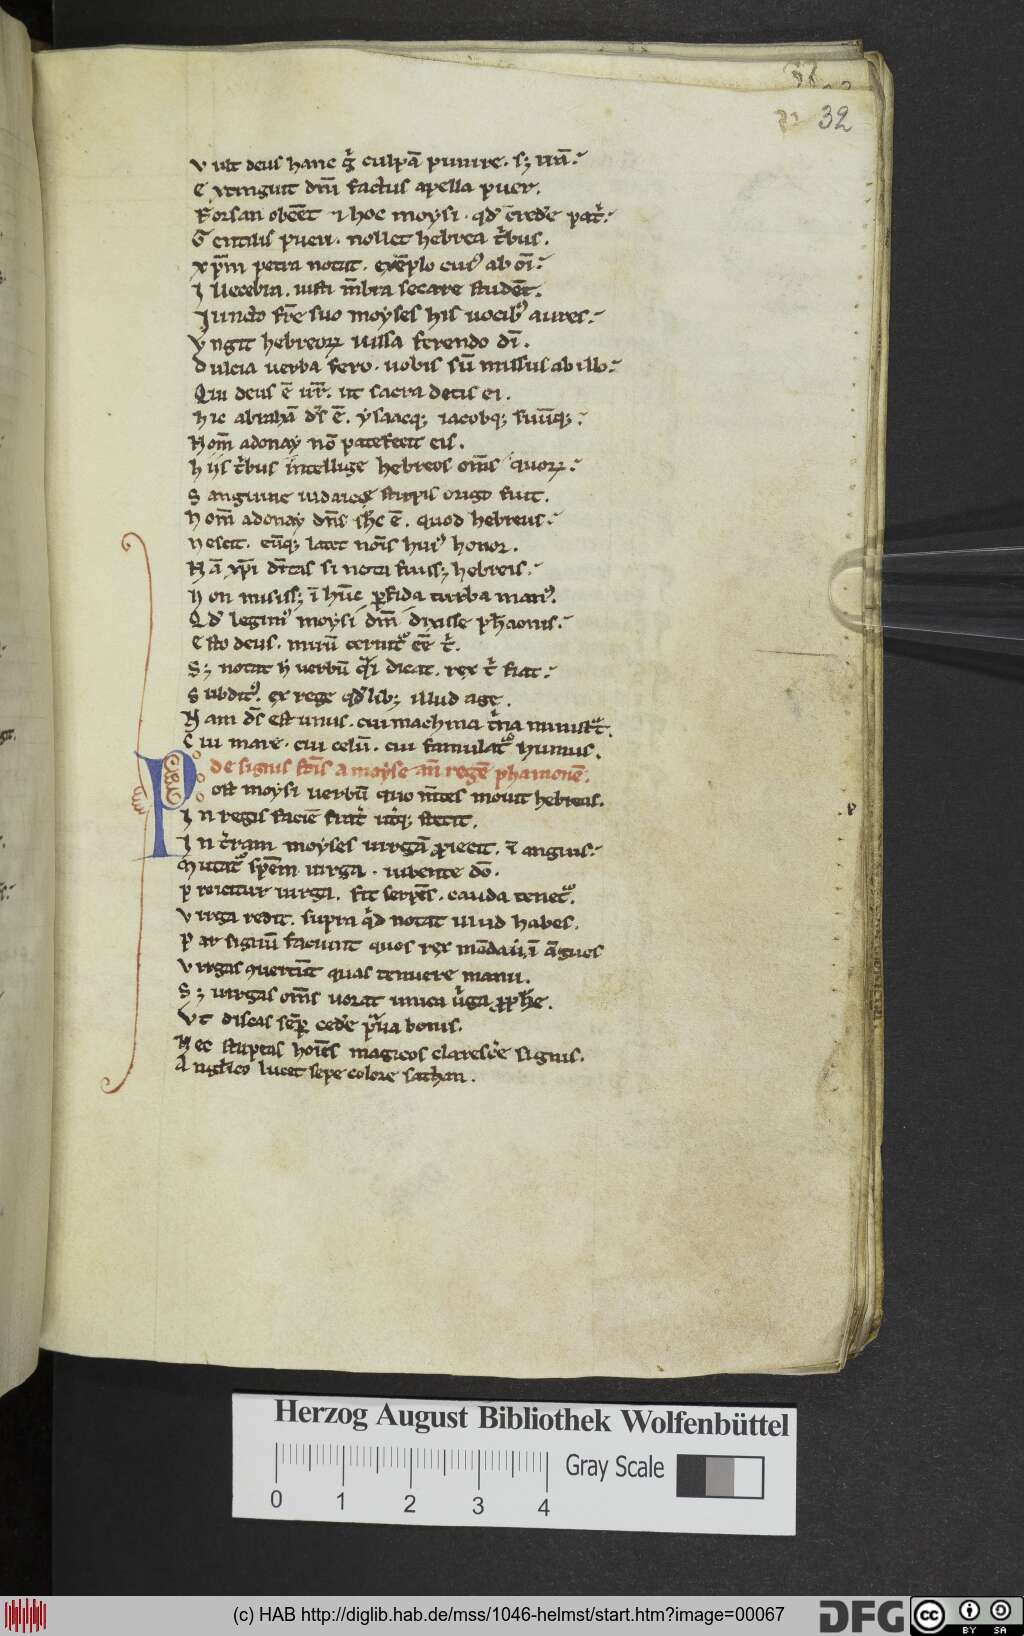 32
Vult deus hanc gͥ culpā punire. sꝫ unū.
Extinguit dn̄i factus apella puer.
Forsan obeēt ⁊ hoc moysi. qd̕ credˀe pat̕
Gentilis pueri. nollet hebrea tͥbus.
xp̄m petra notat. exēplo cuiꝰ ab oī
Illecebra. iusti mēbra secare studēt.
Juncto fr̄e suo moyses his uocibꝰ aures
Vngit hebreoꝝ iussa ferendo dī.
Dulcia uerba fero. uobis sū missus ab illo
Qui deus ē ur̄. ut sacra detis ei.
Hic abrahā dˢ ē. ysaacqꝫ iacobqꝫ suūqꝫ
Nom̄ adonay nō patefecit eis.
Hijs tͥbus intellige hebreos om̄s quoꝝ
Sanguine iudaice stirpis origo fuit.
Nom̄ adonay dn̄s ē. quod hebreus
Nescit. cūqꝫ latet nōis huiꝰ honor.
Nā xp̄i dītas si nota fuissꝫ hebreis.
Non misissꝫ ī hūc ꝑfida turba manꝰ.
Qd̕ legimꝰ moysi dn̄m dixisse pharaonis
Esto deus. mirū cernitᷣ eē tͥ.
Sꝫ notat h̕ uerbū qͣi dicat. rex tͥ fiat
Subditꝰ. ex rege qd̕libꝫ illud age.
Nam dˢ est unus. cui machina tͥna ministᷣat.
Cui mare. cui celū. cui famulatᷣ humus.
de signis fc̄is a moyse an̄ regē pharaonē.
Post moysi uerbū quo m̄tes mouit hebreas.
In regis faciē fuit̕ ut̕qꝫ stetit.
In t̕ram moyses uirgā ꝓiecit. ī anguis
Mutatᷣ spēm uirga. iubente dō.
Proicitur uirga. fit serpēs. cauda tenetᷣ.
Virga redit. supra qͥd notat illud habes.
Par signū faciunt quos rex mōdauit ī āgues
Virgas ꝯuertūt quas tenuere manu.
Sꝫ uirgas om̄s uorat unica uͥga ꝓphē.
Vt discas sēꝑ cedˀe pͣua bonis.
Nec stupeas hoīes magicos claresc̕e signis.
Anglico lucet sepe colore sathan.
Herzog August Bibliothek Wolfenbüttel
Gray Scale
0 1 2 3 4
(c) HAB http://diglib.hab.de/mss/1046-helmst/start.htm?image=00067
DFG
cc BY SA